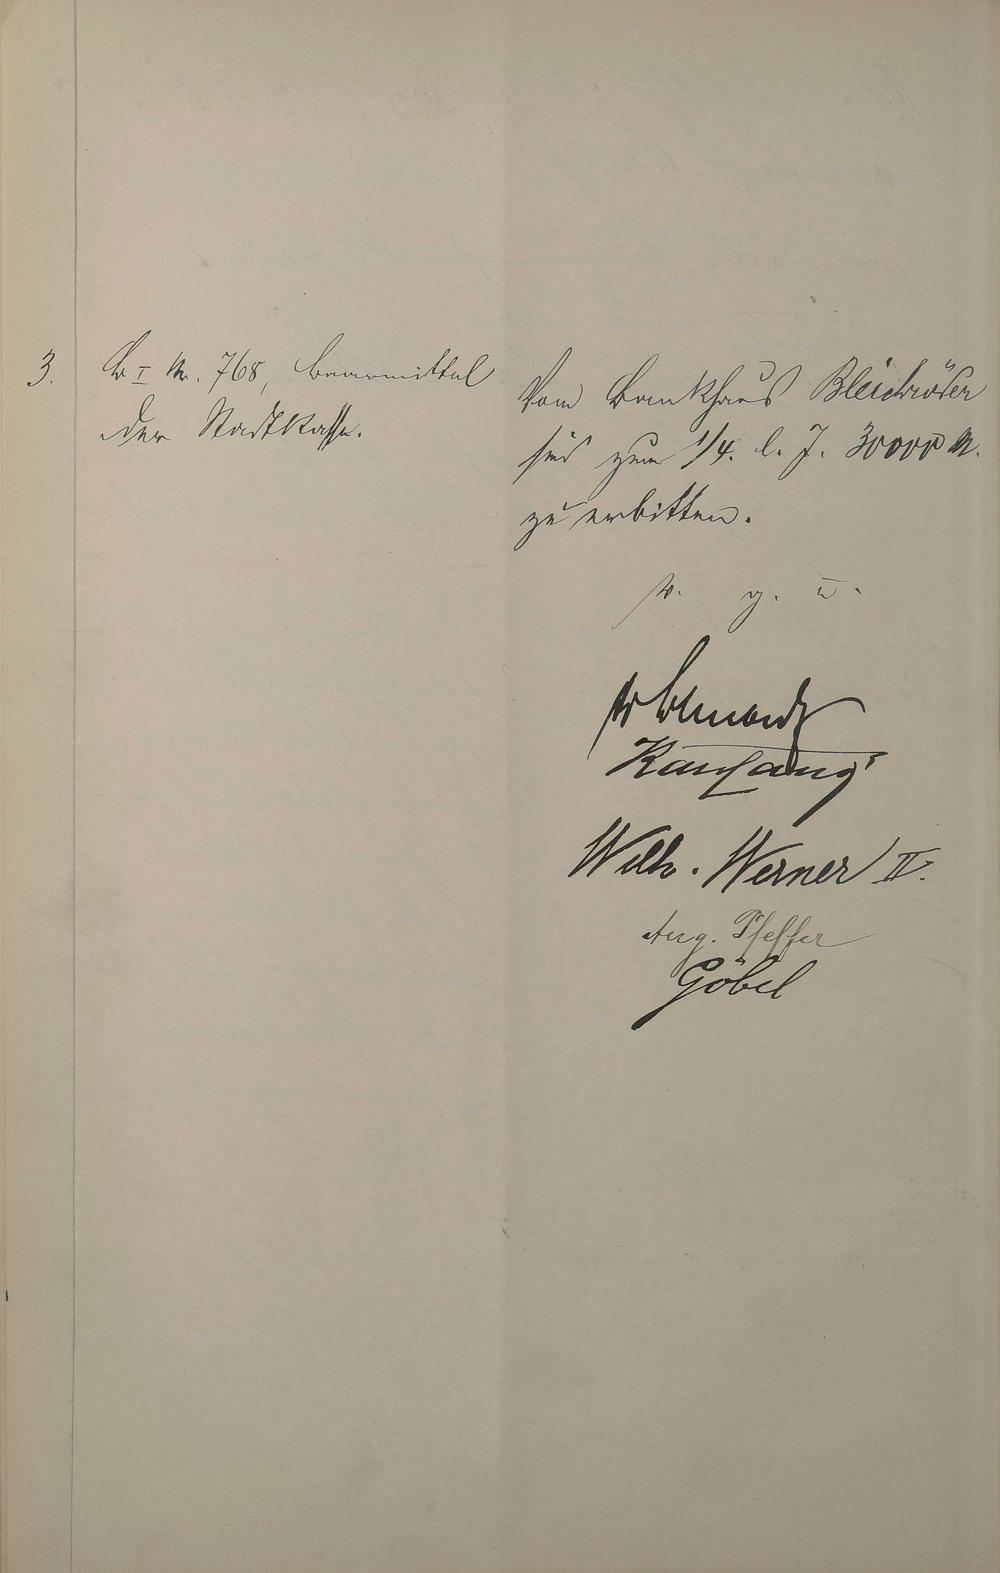 3.
B I Nr. 768, Baarmittel
der Stadtkasse.
Vom Bankhaus Bleichröder
sind zum 1/4. l. J. 30000 M.
zu erbitten.
v. g. u.
Kaufang
Wilh. Werner II.
Aug. Pfeffer
Göbel